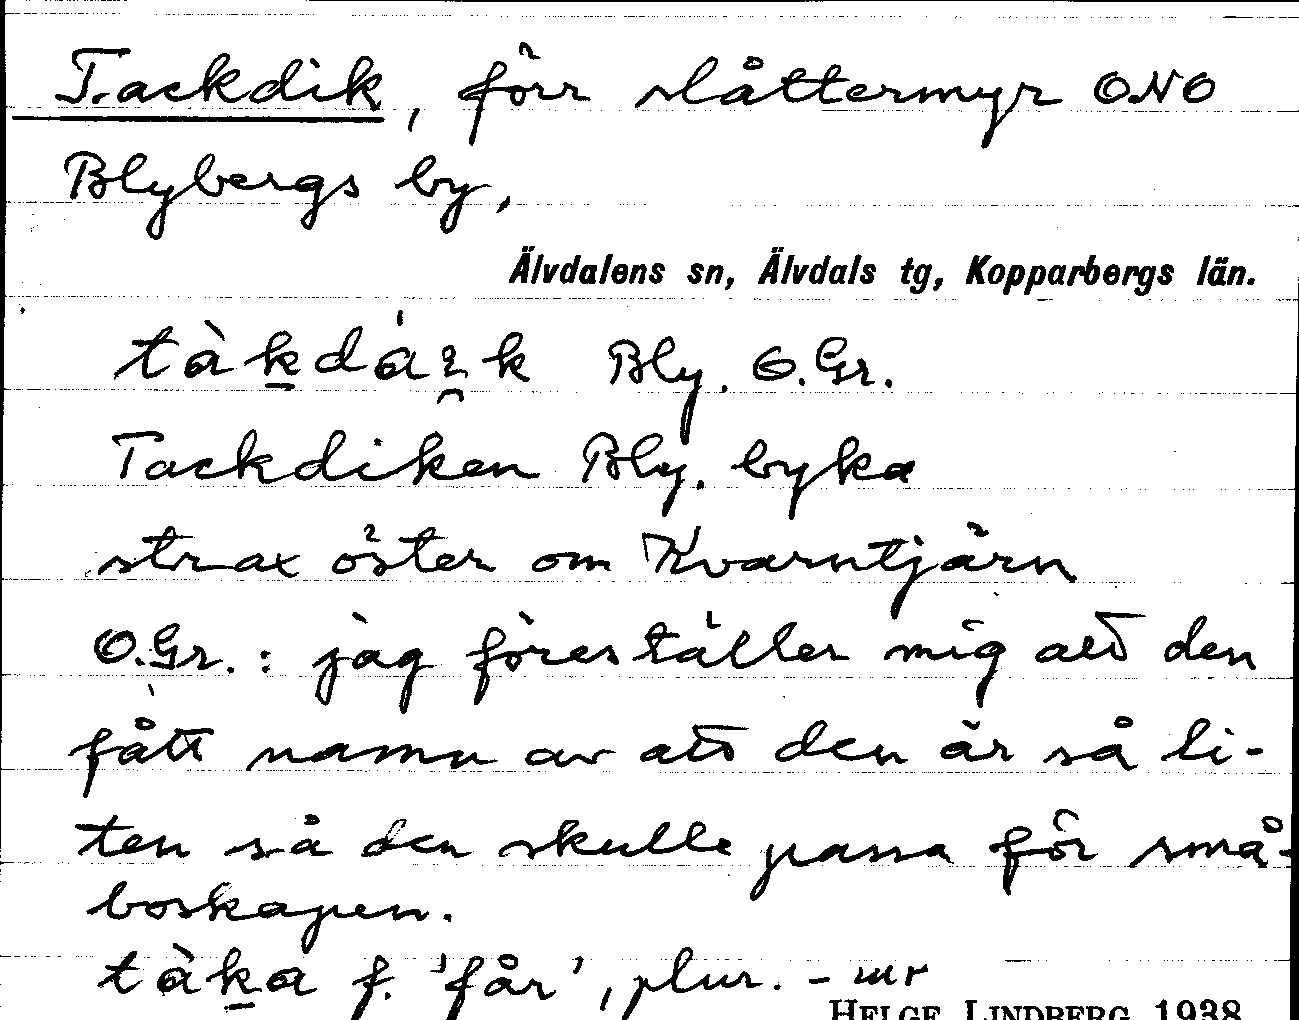 Tackdik, förr slåttermyr ONO
Blybergs by,
Älvdalens sn, Älvdals tg, Kopparbergs län.
Bly. O.Gr.
Tackdiken Bly. byka
strax öster om Kvarntjärn
O.Gr.: jag föreställer mig att den
fått namn av att den är så li-
ten så den skulle passa för små-
boskapen.
tàka f. 'får', plur. - ur
HELGE LINDBERG 1938